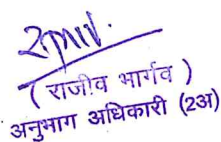 ( राजीव भार्गव )
अनुभाग अधिकारी (2अ)